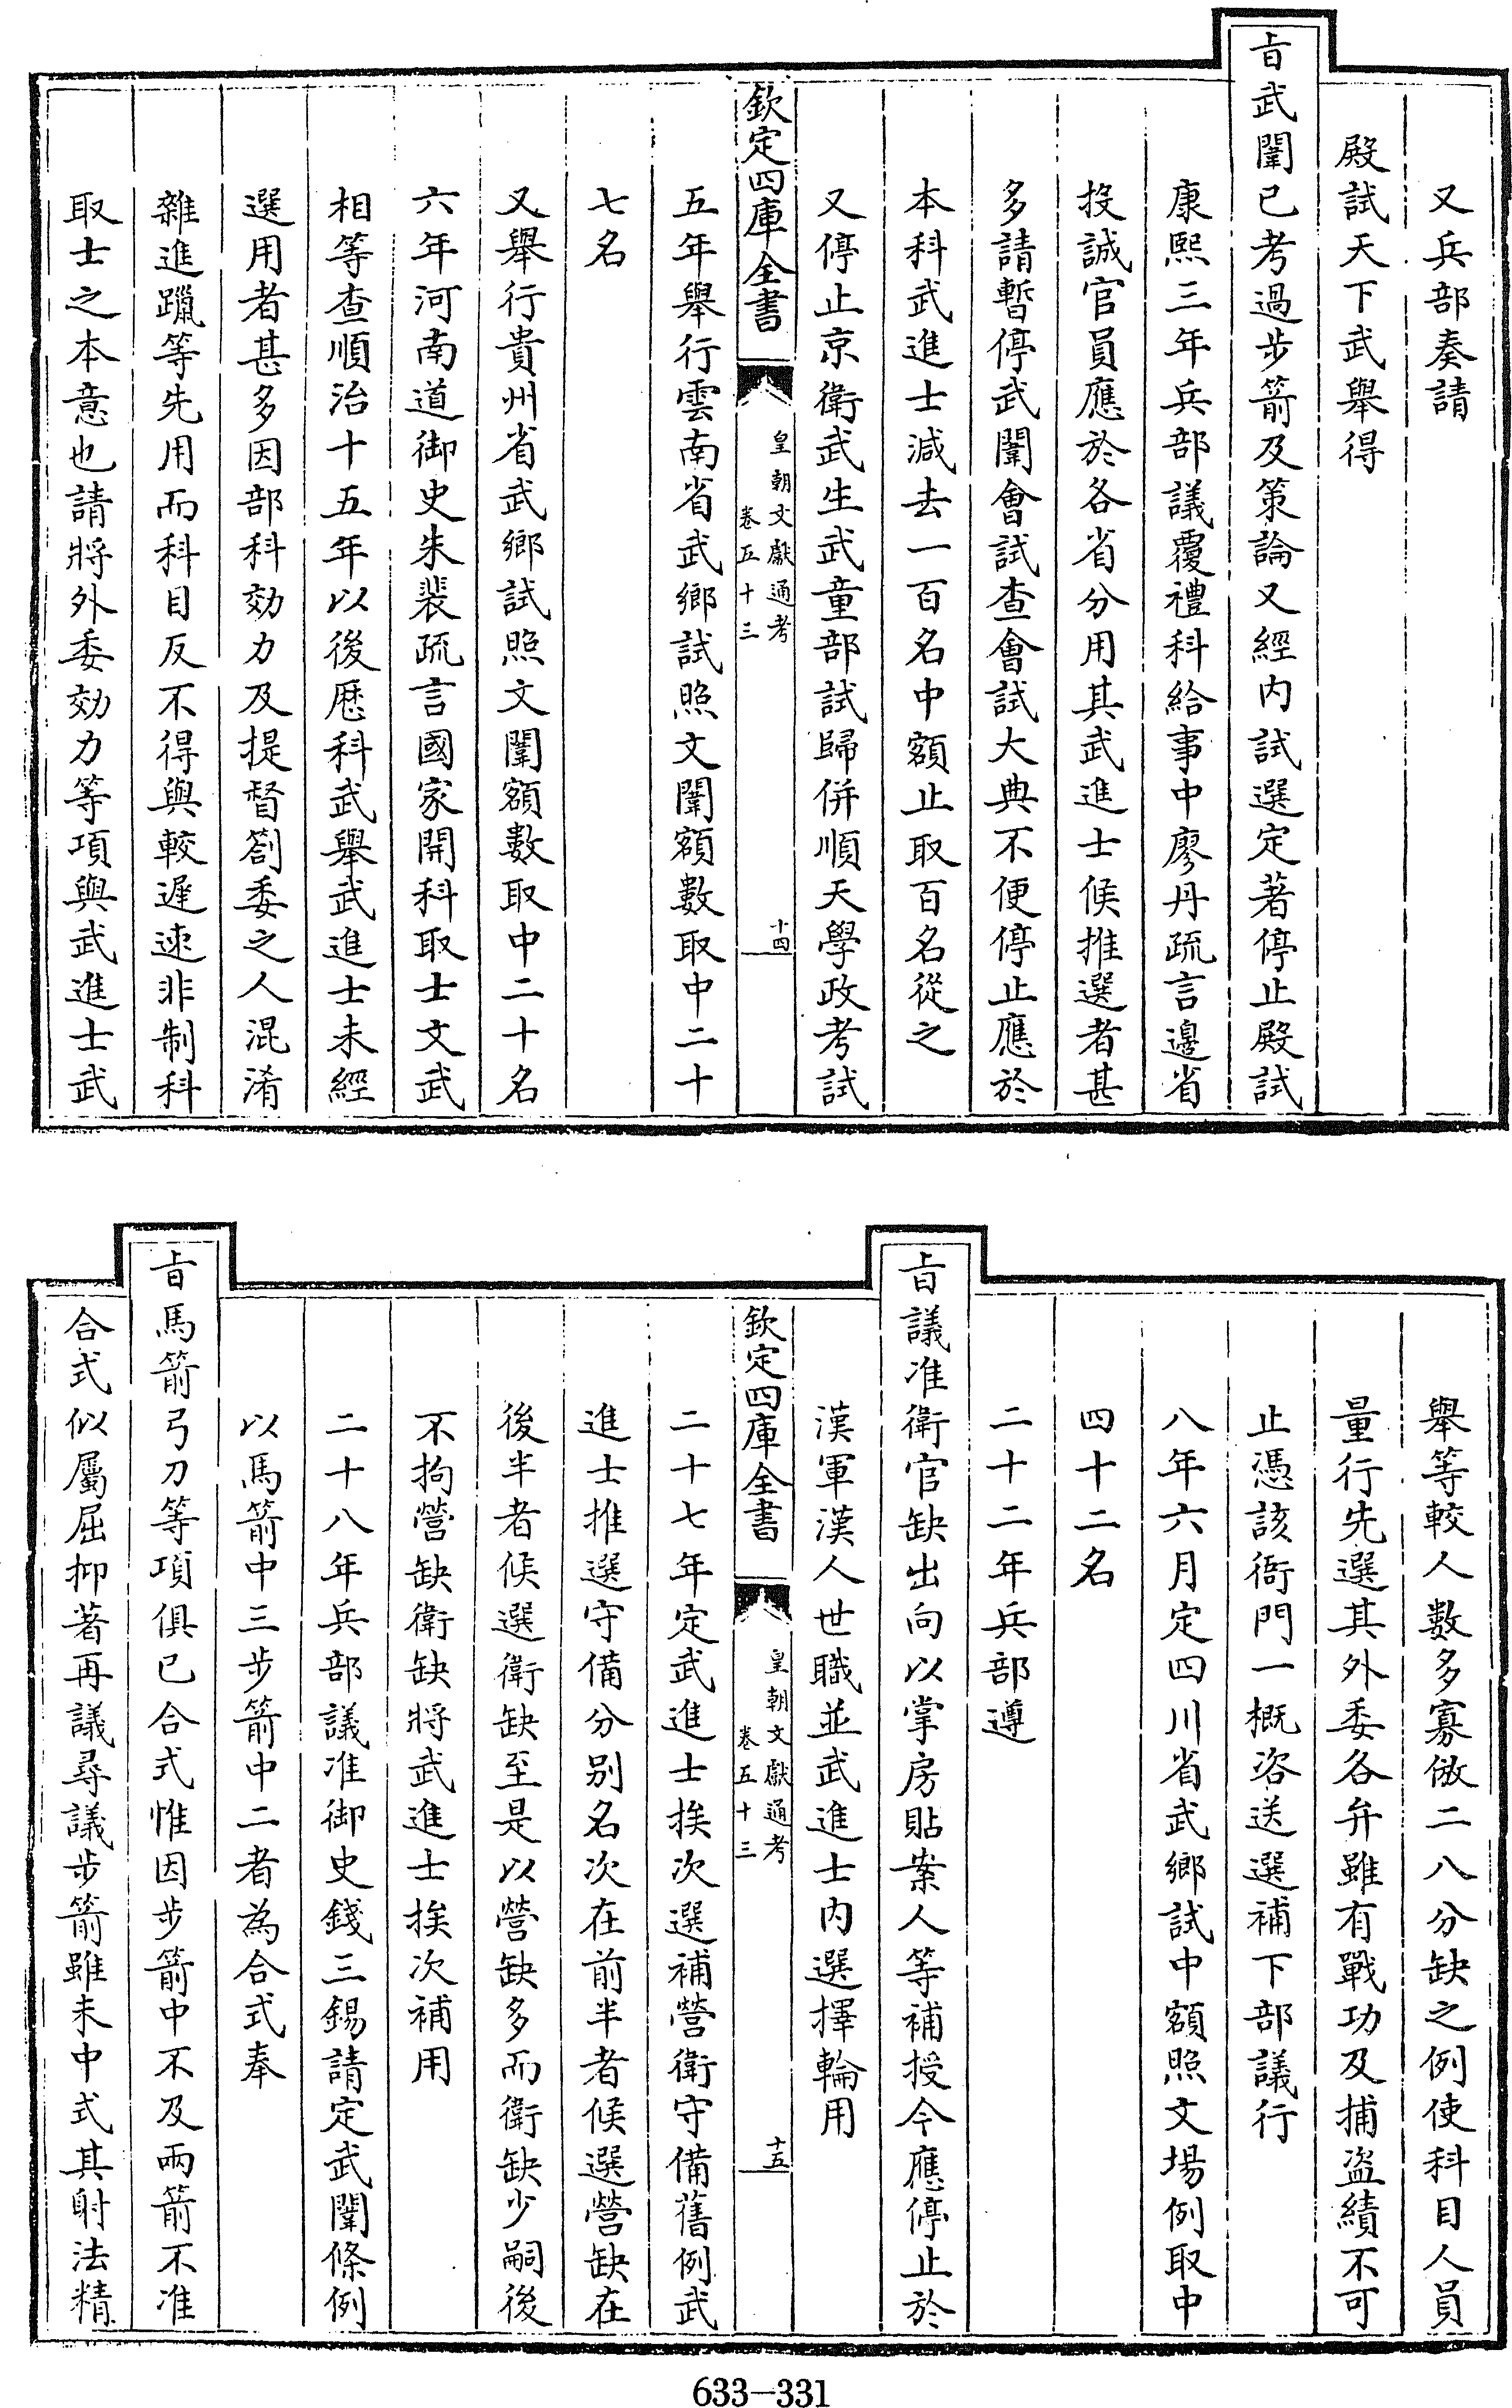 又兵部奏請
殿試天下武舉得
旨武闈已考過步箭及策論又經内試選定著停止殿試
康熙三年兵部議覆禮科給事中廖丹疏言邊省
投誠官員應於各省分用其武進士候推選者甚
多請暫停武闈會試查會試大典不便停止應於
本科武進士減去一百名中額止取百名從之
又停止京衛武生武童部試歸併順天學政考試
欽定四庫全書
皇朝文獻通考
卷五十三
十四
五年舉行雲南省武鄉試照文闈額數取中二十
七名
又舉行貴州省武鄉試照文闈額數取中二十名
六年河南道御史朱裴疏言國家開科取士文武
相等查順治十五年以後歷科武舉武進士未經
選用者甚多因部科効力及提督劄委之人混淆
雜進躐等先用而科目反不得與較遲速非制科
取士之本意也請將外委効力等項與武進士武
舉等較人數多寡倣二八分缺之例使科目人員
量行先選其外委各弁雖有戰功及捕盜績不可
止憑該衙門一概咨送選補下部議行
八年六月定四川省武鄉試中額照文場例取中
四十二名
二十二年兵部遵
旨議准衛官缺出向以掌房貼案人等補授今應停止於
漢軍漢人世職並武進士内選擇輪用
欽定四庫全書
皇朝文獻通考
卷五十三
十五
二十七年定武進士挨次選補營衛守備舊例武
進士推選守備分别名次在前半者候選營缺在
後半者候選衛缺至是以營缺多而衛缺少嗣後
不拘營缺衛缺將武進士挨次補用
二十八年兵部議准御史錢三錫請定武闈條例
以馬箭中三步箭中二者為合式奉
旨馬箭弓刀等項俱已合式惟因步箭中不及兩箭不准
合式似屬屈抑著再議尋議步箭雖未中式其射法精
633-331